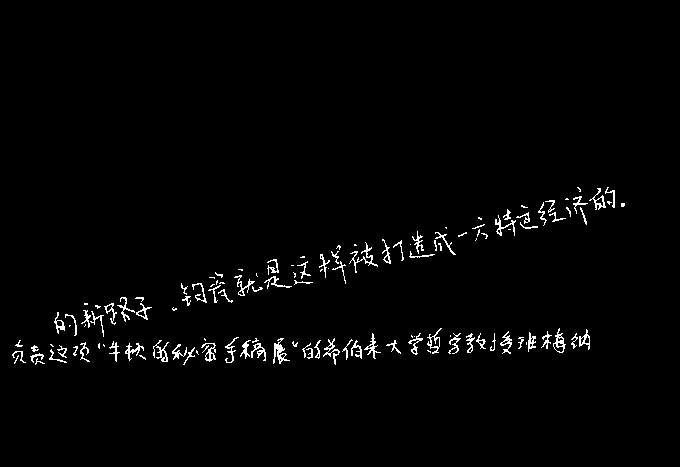 的新路子.钧瓷就是这样被打造成一方特色经济的.
负责这项“牛顿的秘密手稿展”的希伯来大学哲学教授班梅纳